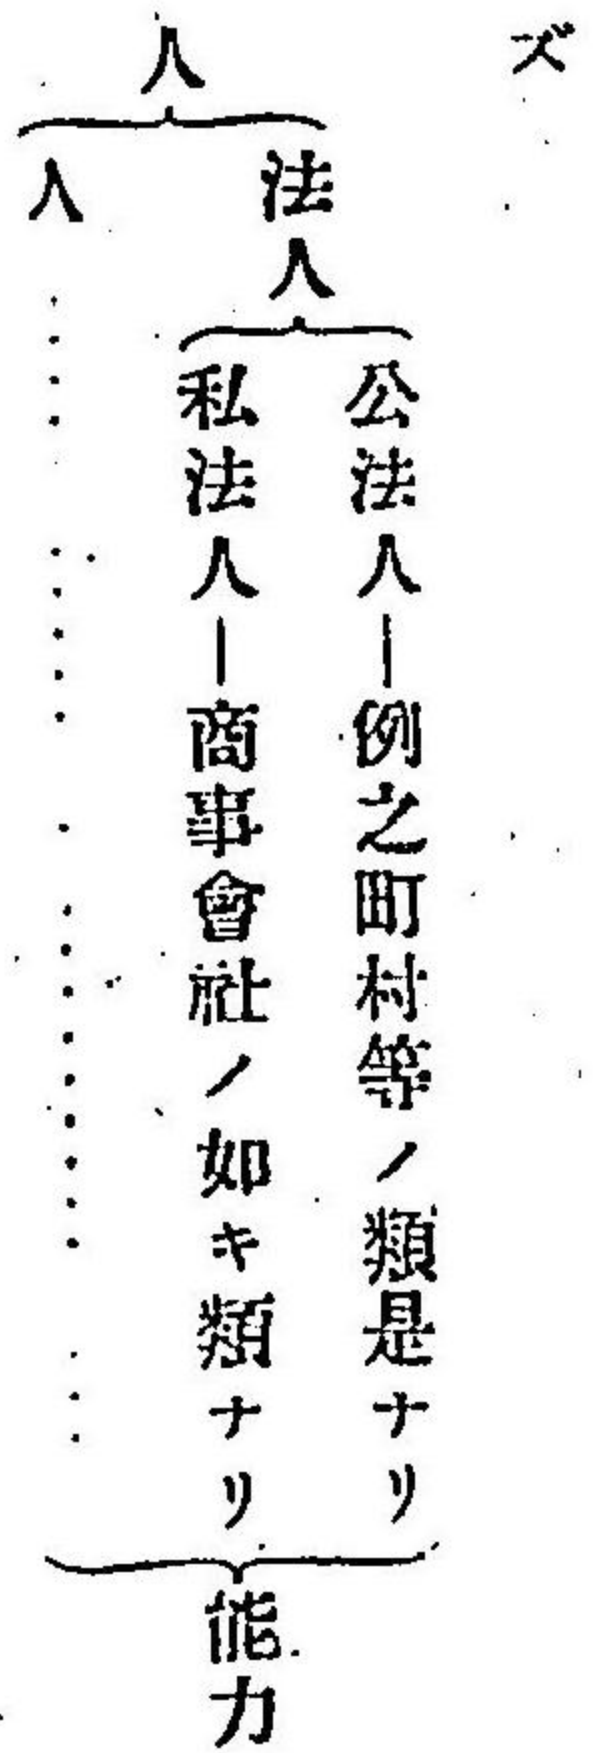 ズ
人
法人
公法人—例之町村等ノ類是ナリ
私法人—商事會社ノ如キ類ナリ
人
能力